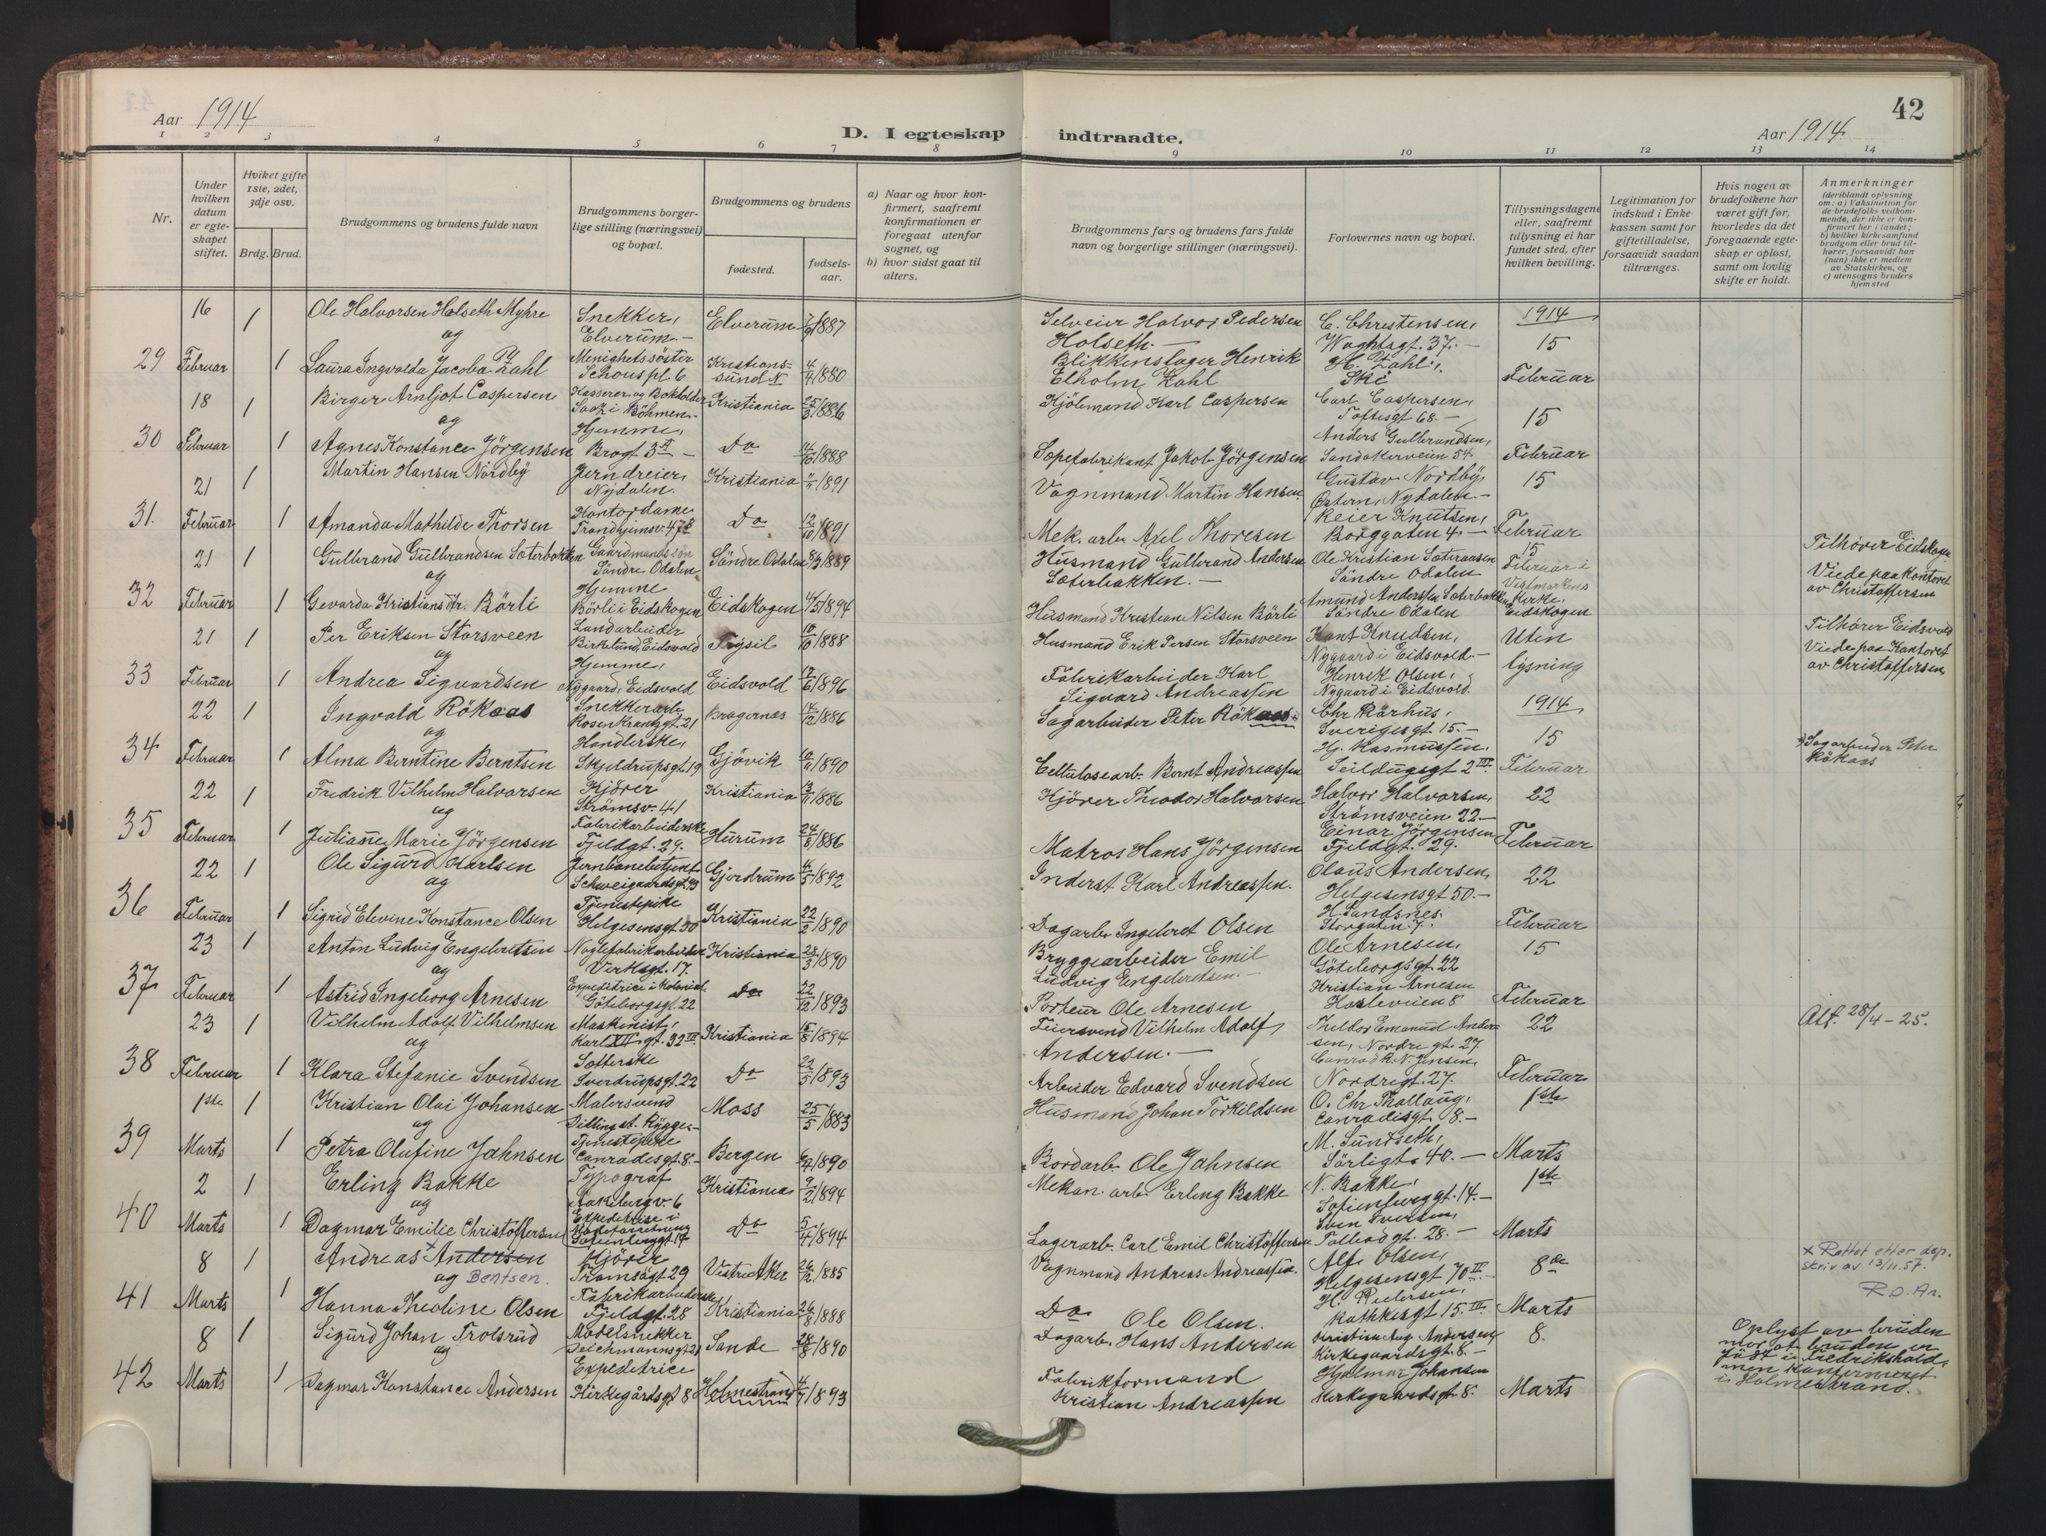 Aar 1914
D. I egteskap indtraadte.
Aar 1914
42
1 2 3 4 5 6 7 8 9 10 11 12 13 14
Nr.
Under hvilken datum er egteskapet stiftet.
Hviket gifte 1ste, 2det, 3dje osv.
Brdg. Brud.
Brudgommens og brudens fulde navn
Brudgommens borgerlige stilling (næringsvei) og bopæl.
Brudgommens og brudens
fødested.
fødselsaar.
a) Naar og hvor konfirmert, saafremt konfirmationen er foregaat utenfor sognet, og
b) hvor sidst gaat til alters.
Brudgommens fars og brudens fars fulde navn og borgerlige stillinger (næringsvei).
Forlovernes navn og bopæl.
Tillysningsdagene eller, saafremt tillysning ei har fundet sted, efter hvilken bevilling.
Legitimation for indskud i Enkekassen samt for giftetilladelse, forsaavidt saadan tiltrænges.
Hvis nogen av brudefolkene har været gift før, hvorledes da det foregaaende egteskap er opløst, samt om lovlig skifte er holdt.
Anmerkninger
(deriblandt oplysning om: a) Vaksination for de brudefolks vedkommende, der ikke er konfirmert her i landet; b) hvilket kirkesamfund brudgom eller brud tilhører, forsaavidt han (hun) ikke er medlem av Statskirken, og c) utensogns bruders hjemsted
16 1 Ole Halvorsen Holseth Myhre Snekker, Elverum 7/9 1887 Selveier Halvor Pedersen C. Christensen, 1914
og Elverum. Holseth. Vognmagt. 37. 15
29 Februar 1 Laura Ingvalda Jacoba Zahl Menighetssöster Schouspl. 6 Kristianssund N 4/4 1880 Blikkenslager Henrik Elholm Zahl H. Zahl, Ski Februar
18 1 Birger Arnljot Caspersen Kasserer og Bokholder Saaz i Böhmen Kristiania 25/3 1886 Kjölmand Karl Caspersen Carl Caspersen, Toftesgt 68. 15
og
30 Februar 1 Agnes Konstance Jörgensen Hjemme, Brogt 3 II Do 1888 Sæpefabrikant Jakob Jörgensen Anders Gulbrandsen, Sandakerveien 54. Februar
21 1 Martin Hansen Nordby Jerndreier, Nydalen. Kristiania 1891 Vognmand Martin Hansen Gustav Nordby, Nydalen. 15
31. Februar 1 Amanda Mathilde Thorsen Kontordame Trondhjemsv. 47 Do 12/10 1891 Mek. arb. Axel Thoresen Reier Knutsen, Borggaten 4. Februar
21 1 Gulbrand Gulbrandsen Sæterbakken Gaardmandssön Söndre Odalen Söndre Odalen 1889 Husmand Gulbrand Andersen Sæterbakken. Ole Kristian Sæteraasen Söndre Odalen 15 Februar i Vestmarkens Kirke, Eidskogen Tilhører Eidskogen
og
32 Februar 1 Gevarda Kristians dtr. Börli Hjemme Börli i Eidskogen Eidskogen 4/5 1894 Husmand Kristian Nilsen Börli Amund Andersen Sæterbakken Söndre Odalen Viede paa kontoret av Christoffersen
21 1 Per Eriksen Storsveen Landarbeider Birkelund, Eidsvold Trysil 10/10 1888 Husmand Erik Persen Storsveen Kant Knudsen, Nygaard i Eidsvold Uten lysning Tilhører Eidsvold
og
33 Februar 1 Andrea Sigvardsen Hjemme, Nygaard, Eidsvold Eidsvold 1896 Fabrikarbeider Karl Sigvard Andreassen Henrik Olsen, Nygaard i Eidsvold Viede paa Kontoret av Christoffersen
22 1 Ingvald Rökaas Snekkerarb. Rosenkrantzgt. 21 Bragernes 14/12 1886 Sagarbeider Peter Rökaas Chr Aarhus, Sverigesgt 15. 1914 15
og
34 Februar 1 Alma Berntine Berntsen Handlerske, Skjeldrupsgt. 19 Gjövik 10/11 1890 Cellulosearb. Bernt Andreassen Hj. Rasmussen, Seildugsgt 2 III. Februar Sagarbeider Peter Rökaas
22 1 Fredrik Vilhelm Halvorsen Kjörer Strömsv. 41 Kristiania 1886 Kjörer Theodor Halvorsen Halvor Halvorsen, Strömsveien 22. 22
og
35 Februar 1 Juliane Marie Jörgensen Fabrikarbeiderske Fjeldgt. 29. Hurum 24/8 1886 Matros Hans Jörgensen Einar Jörgensen Fjeldgt. 29. Februar
22 1 Ole Sigurd Karlsen Jernbanebetjent Schweigaardsgt 93 Gjerdrum 4/5 1892 Inderst Karl Andreassen. Olaus Andersen, Helgesensgt 50. 22
og
36 Februar 1 Sigrid Elevine Konstance Olsen Tjenestepike Helgesensgt 50 Kristiania 22/2 1890 Dagarb. Ingebret Olsen H. Sandsnes. Storgaten 7. Februar
23 1 Anton Ludvig Engebretsen Naglefabrikarbeider Verksgt. 17. Kristiania 28/3 1890 Bryggearbeider Emil Ludvig Engebretsen. Ole Arnesen, Göteborgsgt. 22 15
og
37 Februar 1 Astrid Ingeborg Arnesen Expeditrice i Kolonial Göteborgsgt. 22 Do 22/12 1893 Porteur Ole Arnesen Kristian Arnesen Hasleveien 8 Februar
23 1 Vilhelm Adolf Vilhelmsen Maskinist, Karl XII gt. 32 III Kristiania 15/8 1894 Feiersvend Vilhelm Adolf Andersen. Theodor Emanuel Andersen, Nordre gt. 27. 22 Att. 28/4-25.
og
38 Februar 1 Klara Stefanie Svendsen Sotterske Sverdrupsgt. 22 Do 22/5 1893 Arbeider Edvard Svendsen Conrad R. N. Jensen, Nordregt. 27. Februar
1ste 1 Kristian Olai Johansen Malersvend Dillingst. Rygge Moss 25/5 1883 Husmand Johan Torkildsen O. Chr Thallaug, Conradisgt. 8. 1ste
og
39 Marts 1 Petra Olufine Jahnsen Tjenestepike Conradisgt. 8. Bergen 1890 Bordarb. Ole Jahnsen M. Sundseth, Sörligt. 40. Marts
2 1 Erling Bakke Typograf Aakebergv. 6 Kristiania 9/2 1894 Mekan. arb. Erling Bakke N. Bakke, Sofienberggt. 14. 1ste
og
40 Marts 1 Dagmar Emilie Christoffersen Expeditrise i Sofienberggt 14 Do 5/4 1894 Lagerarb. Carl Emil Christoffersen Sven Iversen, Tolbodgt. 28. Marts
8 1 Andreas x Andersen Kjörer Tromsögt 29 Vestre Aker 26/12 1885 Vognmand Andreas Andreassen. Alf Olsen, Helgesensgt 70 II 8de x Rettet etter dep. skriv av 13/11.57.
og Bentsen. R.O. Ar.
41 Marts 1 Hanna Theoline Olsen Fabrikarbeiderske Fjeldgt. 28 Kristiania 26/8 1888 Do Ole Olsen. H. Pedersen, Rathkesgt. 15 III. Marts
8 1 Sigurd Johan Trolsrud Modelsnekker Deichmannsgt 21 Sande 28/8 1890 Dagarb. Hans Andersen Kristian Aug. Andersen Kirkegaardsgt. 8. 8. Oplyst av bruden
og mor at bruden er
42 Marts 1 Dagmar Konstance Andersen Expeditrice Kirkegårdsgt 8 Holmestrand 1893 Fabrikformand Kristian Andreassen Hjalmar Johansen Kirkegaardsgt. 8. Marts født i Fredrikshald men konfirmeret i Holmestrand.